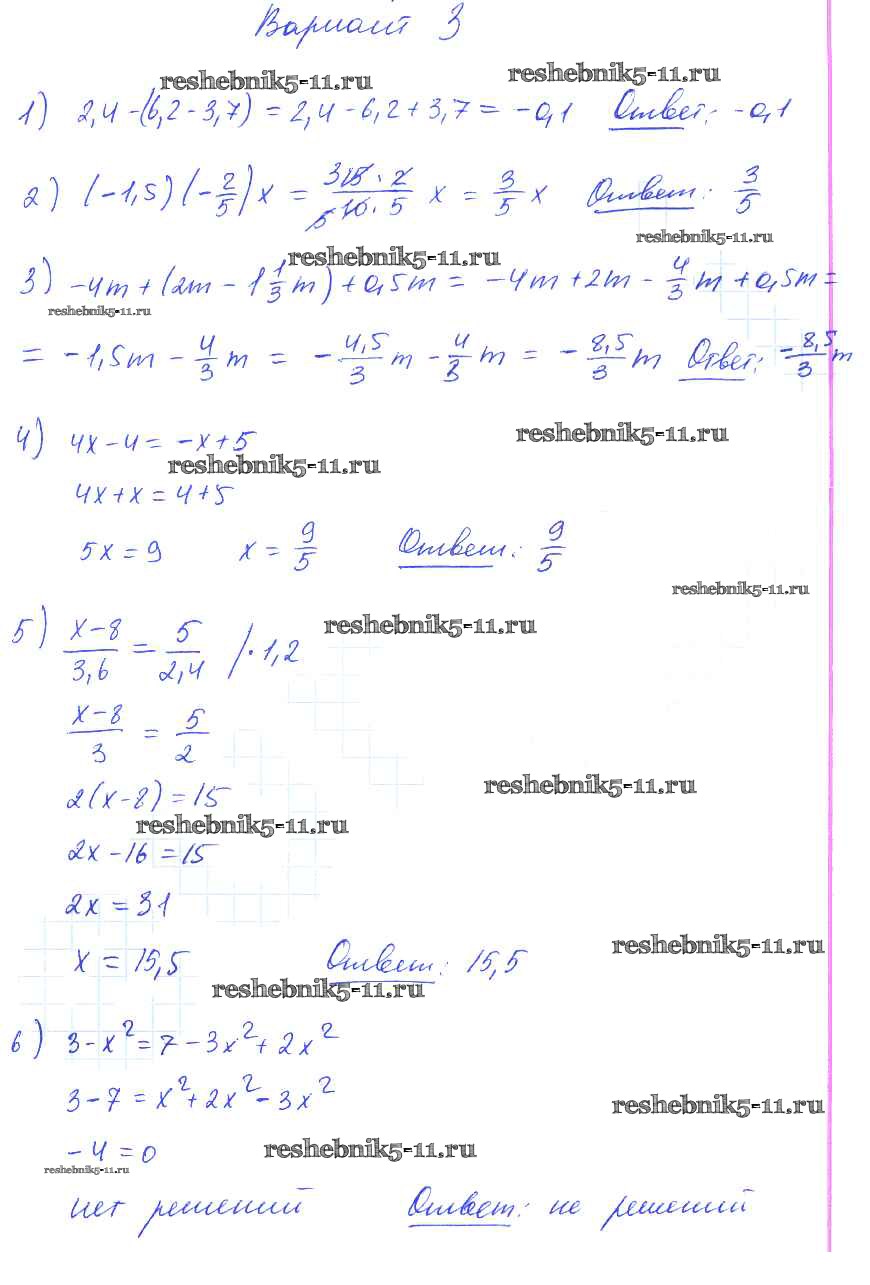 Вариант 3
reshebnik5-11.ru reshebnik5-11.ru
1) 2,4-(6,2-3,7) = 2,4-6,2+3,7 = -0,1 Ответ: -0,1
2) (-1,5)(-2/5)x = 315·2/510·5 x = 3/5 x Ответ: 3/5
reshebnik5-11.ru
reshebnik5-11.ru
3) -4m+(2m-1 1/3 m)+0,5m = -4m+2m-4/3 m+0,5m =
reshebnik5-11.ru
= -1,5m - 4/3 m = -4,5/3 m - 4/3 m = -8,5/3 m Ответ: -8,5/3 m
4) 4x-4 = -x+5
reshebnik5-11.ru
reshebnik5-11.ru
4x+x = 4+5
5x = 9 x = 9/5 Ответ: 9/5
reshebnik5-11.ru
5) x-8/3,6 = 5/2,4 /·1,2
reshebnik5-11.ru
x-8/3 = 5/2
2(x-8) = 15
reshebnik5-11.ru
reshebnik5-11.ru
2x-16 = 15
2x = 31
x = 15,5 Ответ: 15,5
reshebnik5-11.ru
reshebnik5-11.ru
6) 3-x² = 7-3x²+2x²
3-7 = x²+2x²-3x²
reshebnik5-11.ru
-4 = 0
reshebnik5-11.ru
reshebnik5-11.ru
нет решений Ответ: не решений